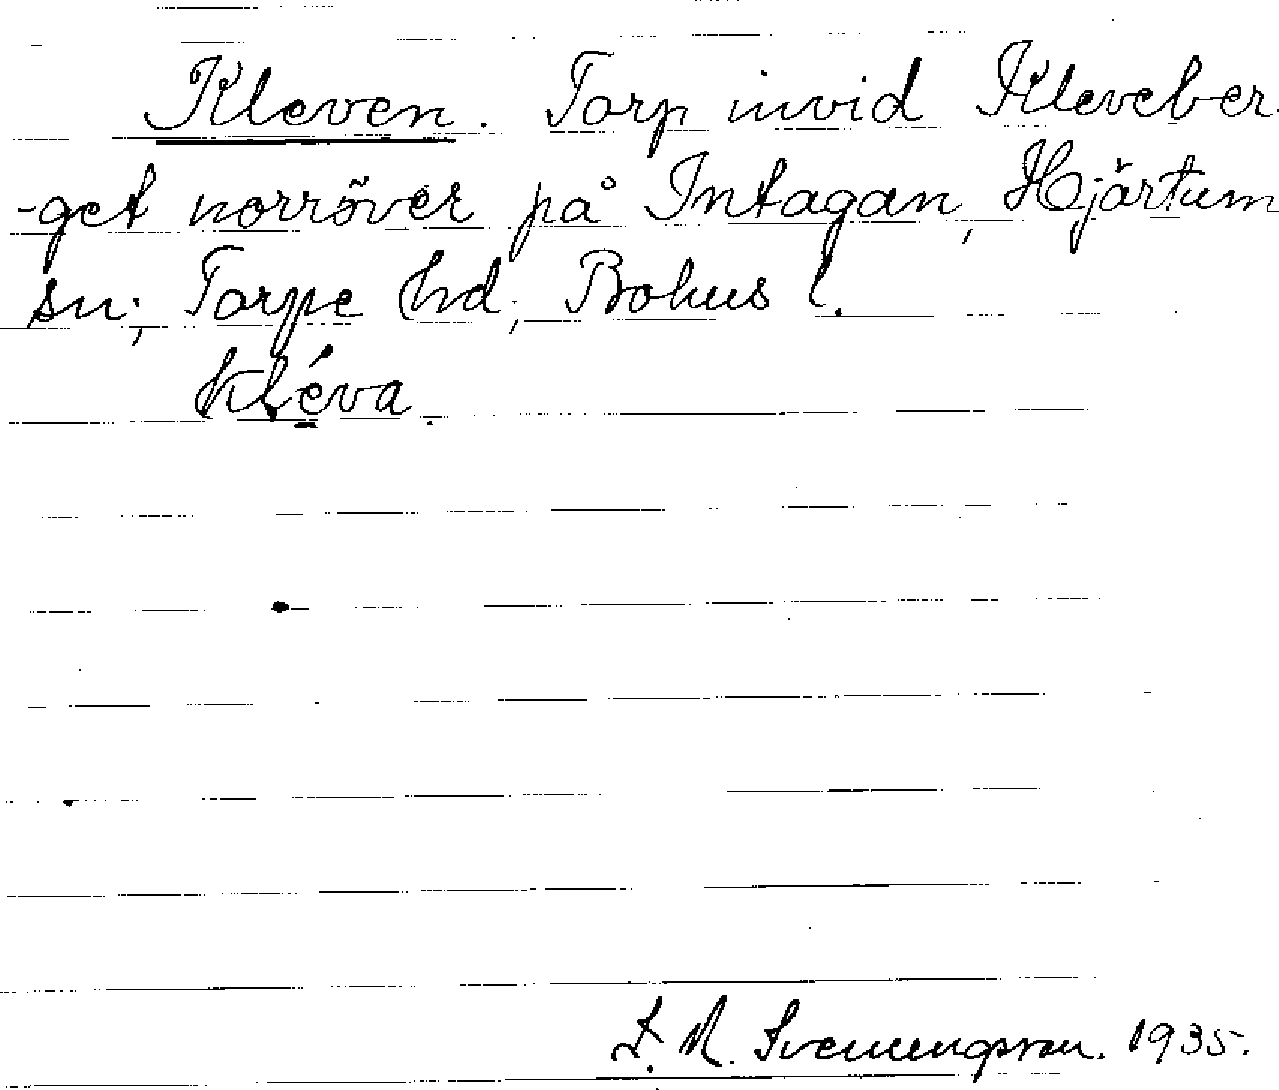 Kleven. Torp invid Kleveber-
-get norröver på Intagan, Hjärtum
sn; Torpe hd; Bohus l.
Kléva.
F. M. Svenungsson. 1935.